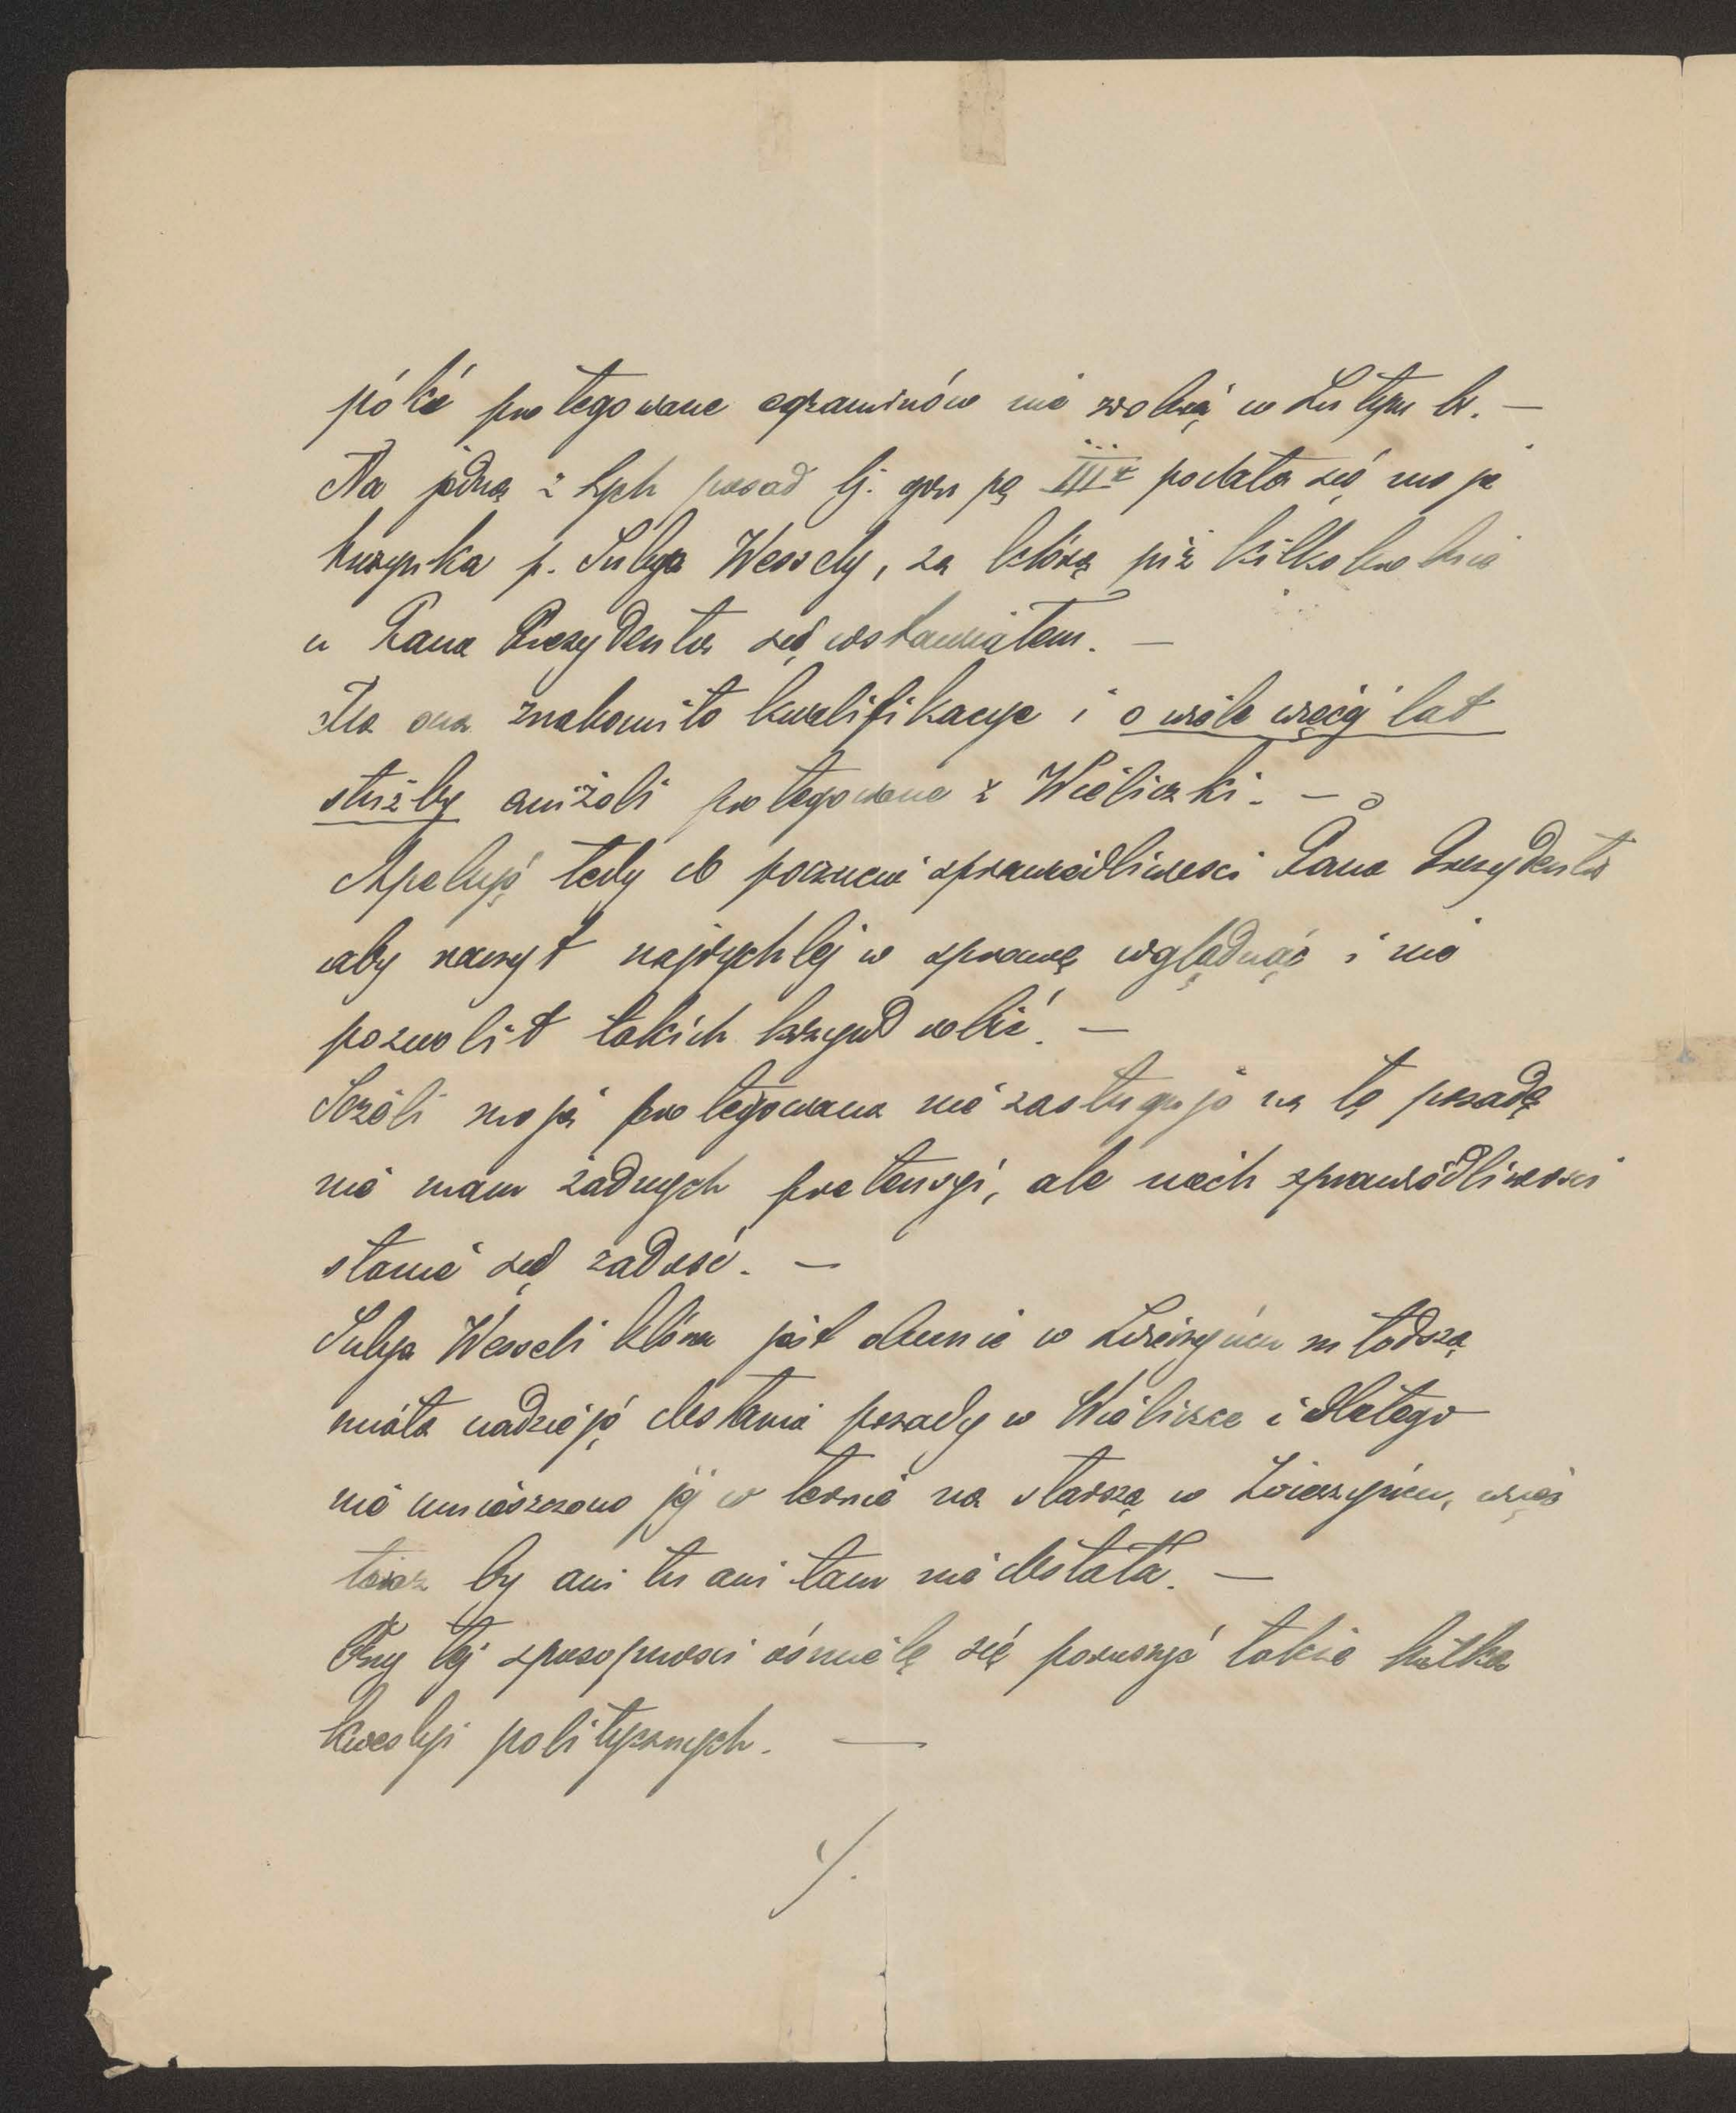 póki protegowane egzaminów nie zrobią w Lutym br. —
Na jedną z tych posad tj. grupę IIIą podała się moja
kuzynka p. Julja Wessely, za którą już kilkakrotnie
u Pana Prezydenta się wstawiałem. —
Ma ona znakomite kwalifikacye i o wiele więcej lat
służby aniżeli protegowane z Wieliczki. —
Apeluję tedy do poczucia sprawiedliwości Pana Prezydenta
aby raczył najrychlej w sprawę wglądnąć i nie
pozwolił takich krzywd robić. —
Jeżeli moja protegowana nie zasługuje na tę posadę
nie mam żadnych pretensyi, ale niech sprawiedliwości
stanie się zadość. —
Julja Wesseli która jest obecnie w Zwierzyńcu młodszą
miała nadzieję dostania posady w Wieliczce i dlatego
nie umieszczono jej w ternie na starszą w Zwierzyńcu, więc
teraz by ani tu ani tam nie dostała. —
Przy tej sposobności ośmielę się poruszyć także kilka
kwestyi politycznych. —
./.